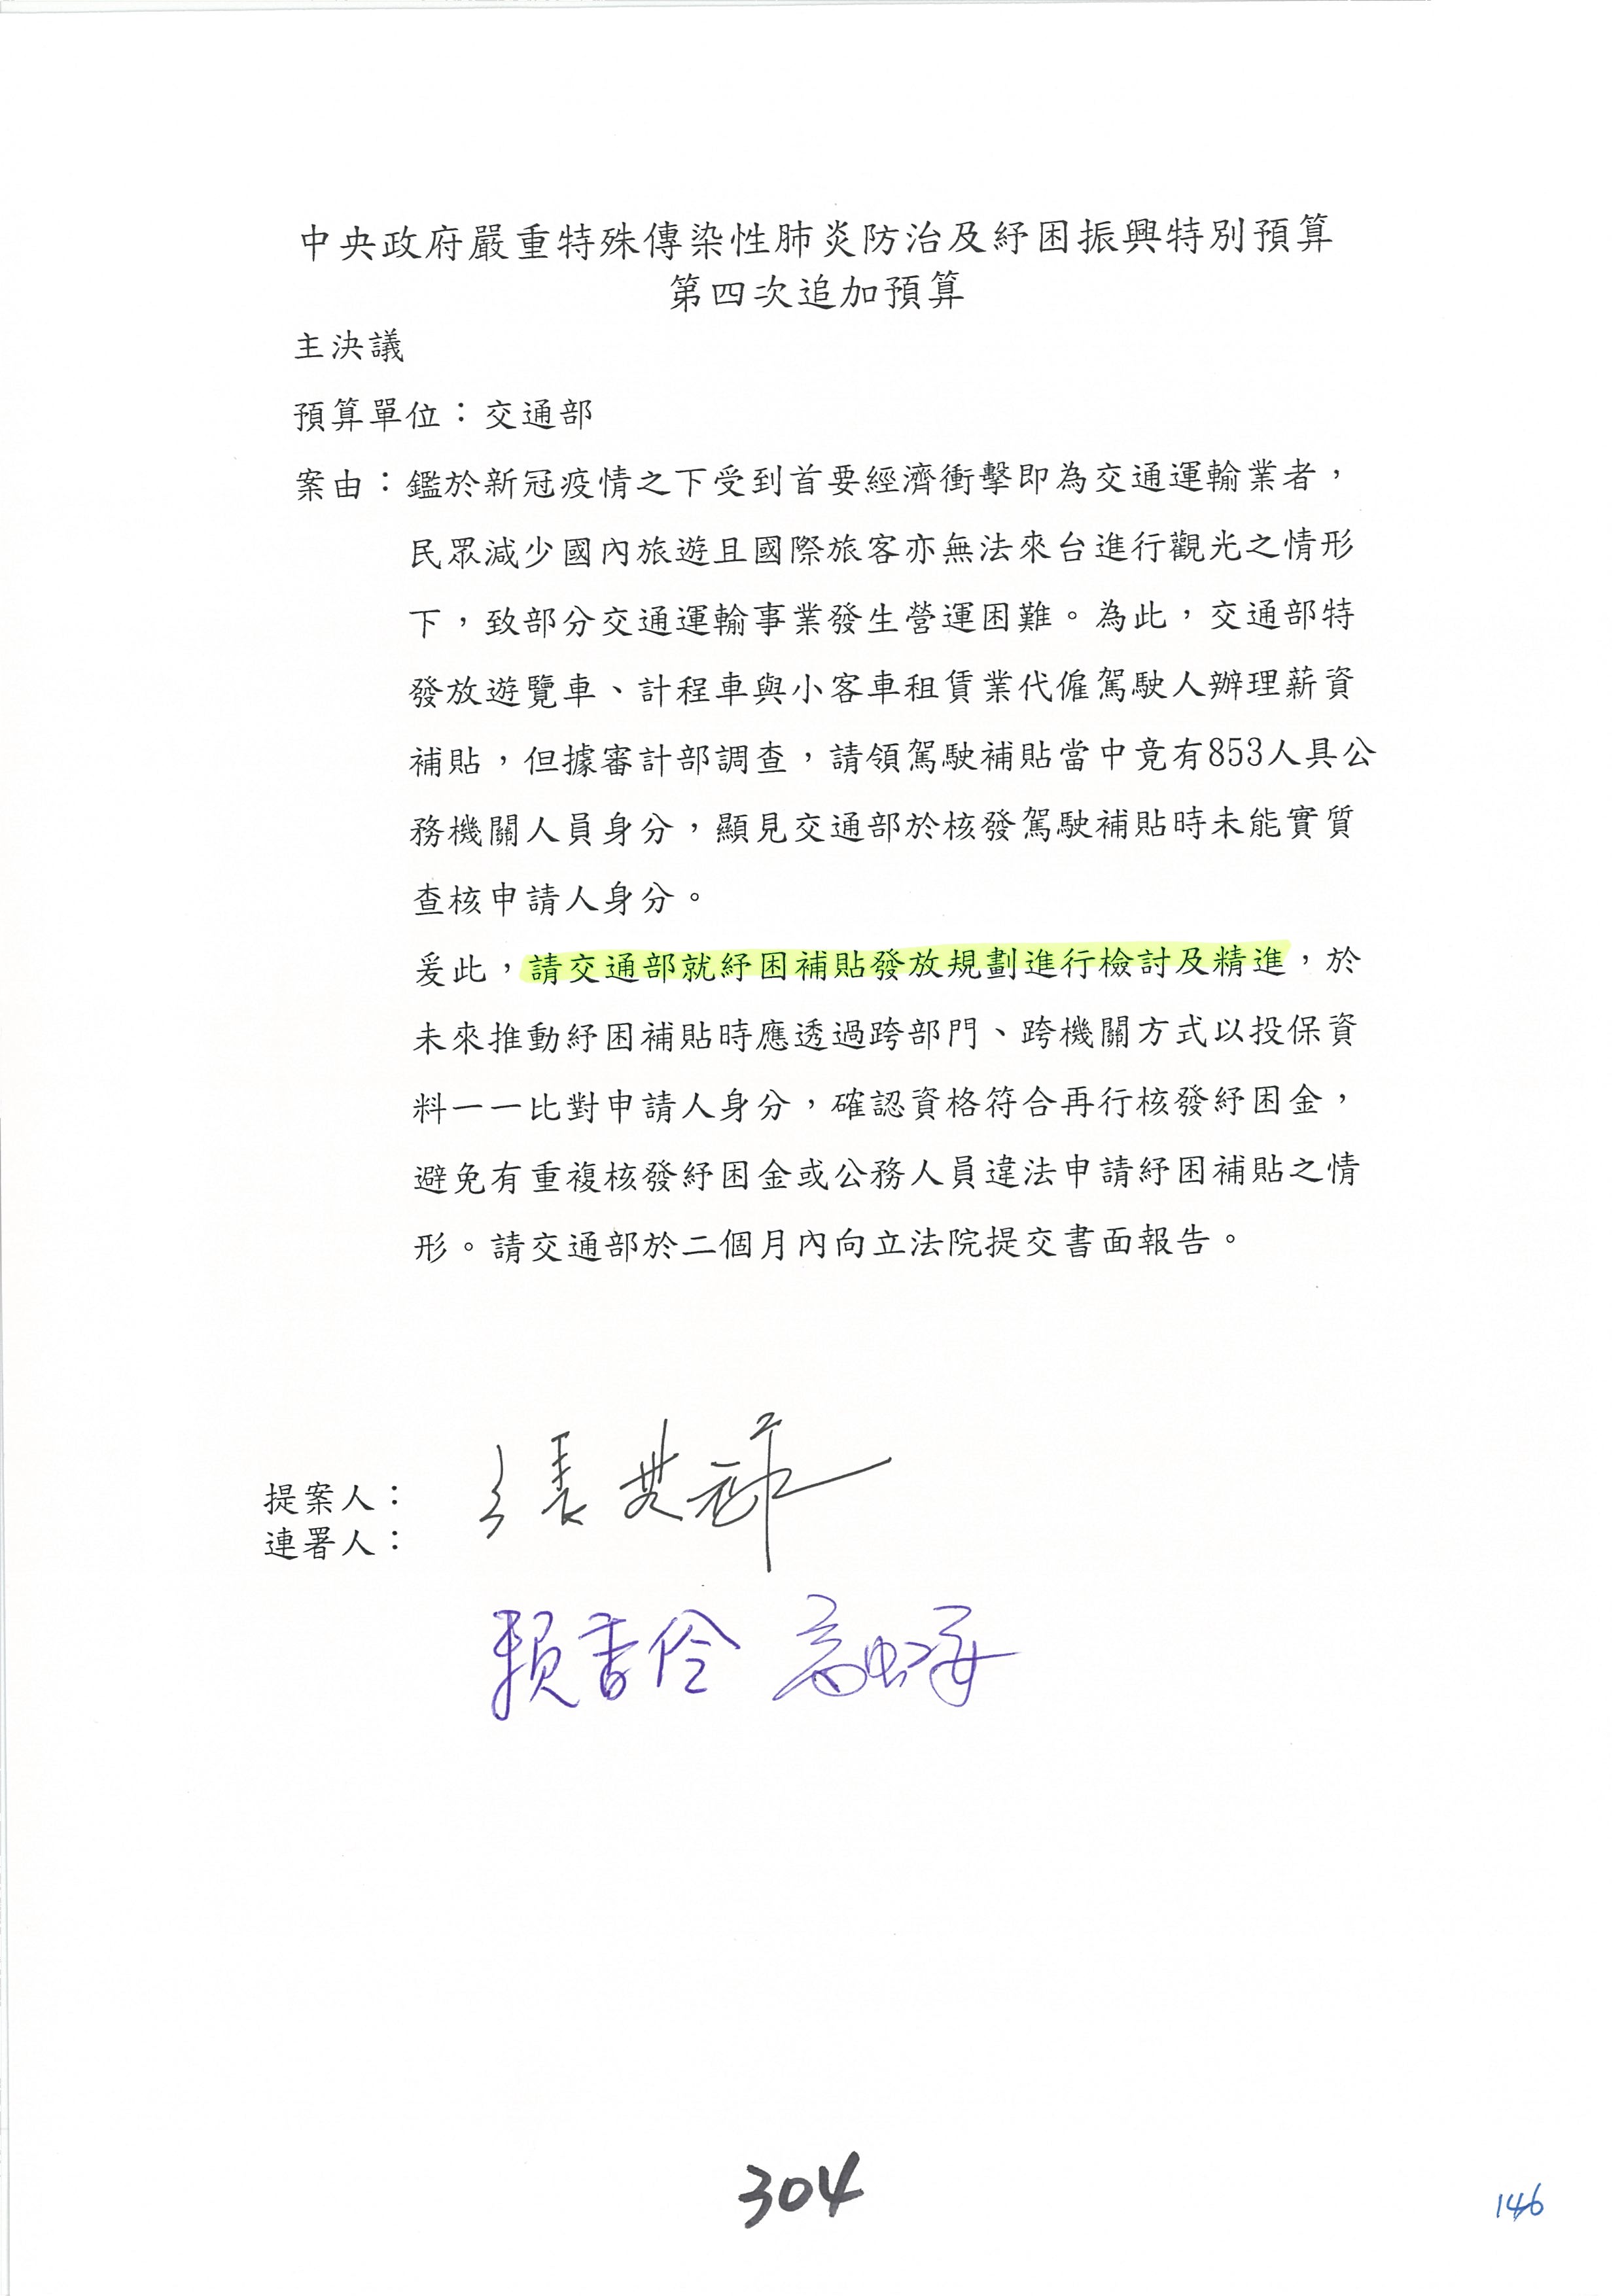 中央政府嚴重特殊傳染性肺炎防治及紓困振興特別預算
第四次追加預算
主決議
預算單位：交通部
案由：鑑於新冠疫情之下受到首要經濟衝擊即為交通運輸業者，
民眾減少國內旅遊且國際旅客亦無法來台進行觀光之情形
下，致部分交通運輸事業發生營運困難。為此，交通部特
發放遊覽車、計程車與小客車租賃業代僱駕駛人辦理薪資
補貼，但據審計部調查，請領駕駛補貼當中竟有853人具公
務機關人員身分，顯見交通部於核發駕駛補貼時未能實質
查核申請人身分。
爰此，請交通部就紓困補貼發放規劃進行檢討及精進，於
未來推動紓困補貼時應透過跨部門、跨機關方式以投保資
料一一比對申請人身分，確認資格符合再行核發紓困金，
避免有重複核發紓困金或公務人員違法申請紓困補貼之情
形。請交通部於二個月內向立法院提交書面報告。
提案人：
連署人：
賴香伶 高虹安
304
146